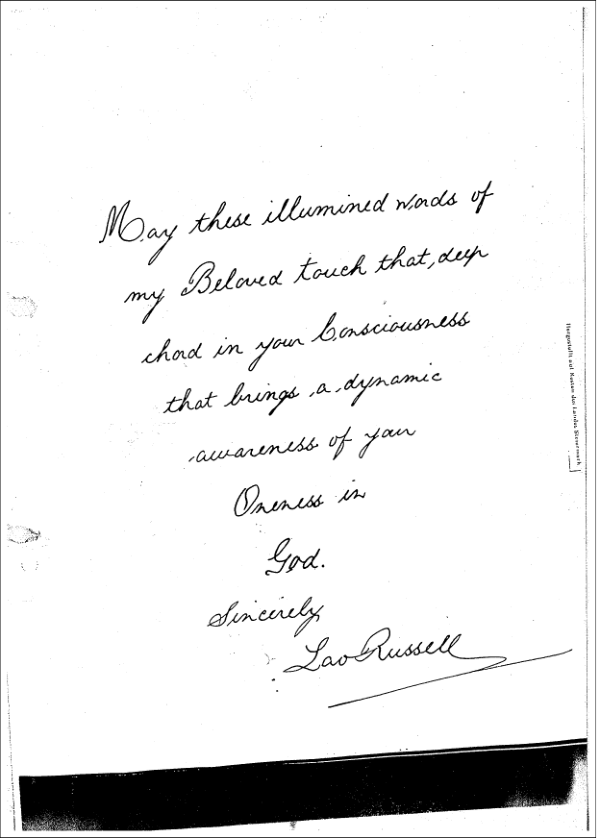 May these illumined words of
my Beloved touch that deep
chord in your Consciousness
that brings a dynamic
awareness of your
Oneness in
God.
Sincerely
Lao Russell
Hergestellt auf Kosten des Landes Steiermark